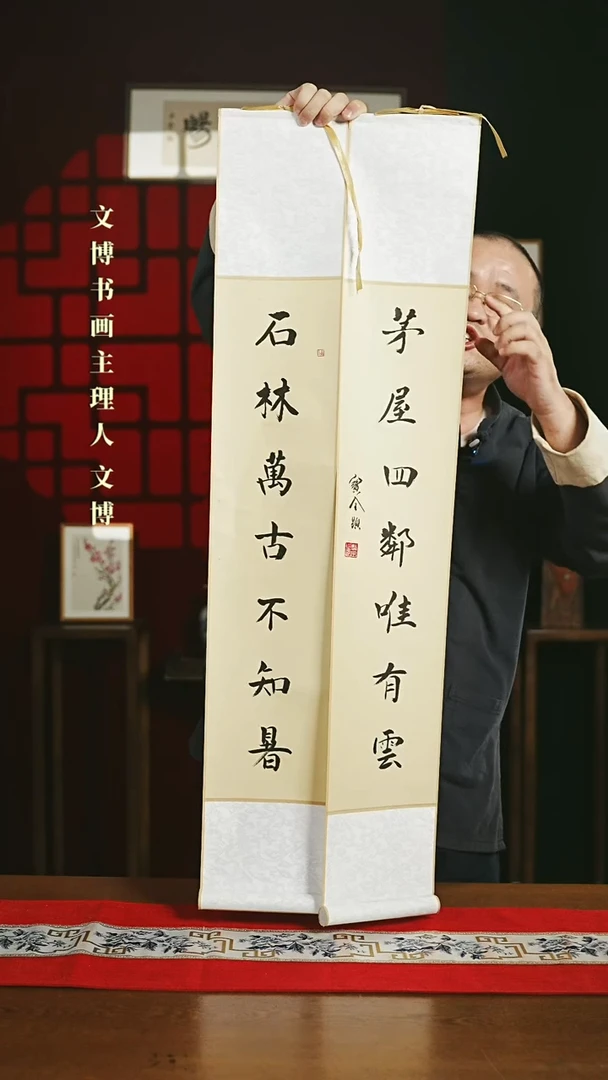 文博书画主理人文博
石林萬古不知暑
茅屋四鄰唯有雲